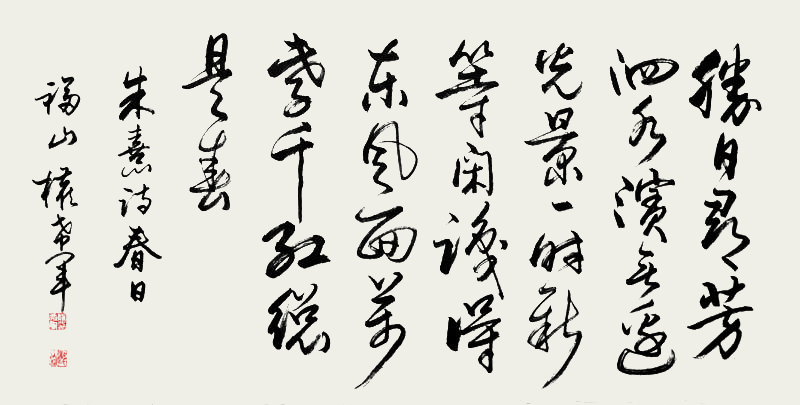 勝日尋芳
泗水濱無邊
光景一時新
等閑識得
東風面萬
紫千紅總
是春
朱熹詩春日
福山權希軍